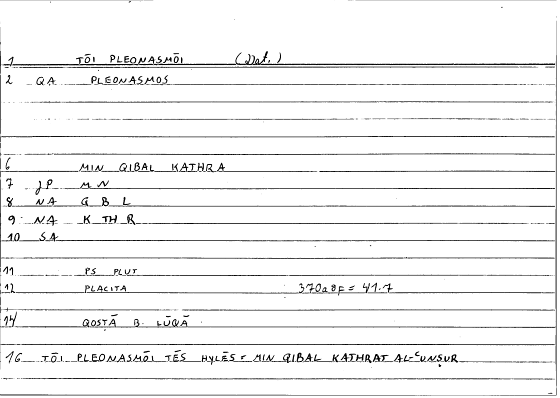 1 TŌI PLEONASMŌI (Dat.)
2 QA PLEONASMOS
6 MIN QIBAL KATHRA
7 JP M N
8 NA Q B L
9 NA K TH R
10 SA
11 PS PLUT
12 PLACITA 370a8f = 41.7
14 QOSṬĀ B. LŪQĀ
16 TŌI PLEONASMŌI TĒS HYLĒS = MIN QIBAL KATHRAT AL-ʿUNṢUR